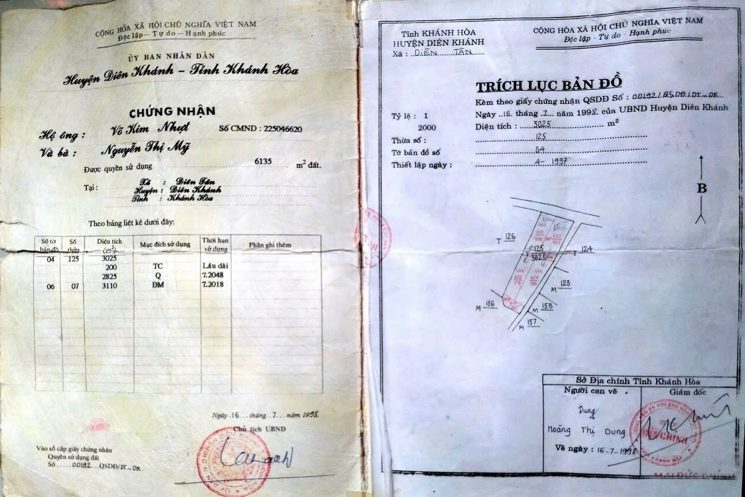 CỘNG HÒA XÃ HỘI CHỦ NGHĨA VIỆT NAM
Độc lập - Tự do - Hạnh phúc
ỦY BAN NHÂN DÂN
Huyện Diên Khánh - Tỉnh Khánh Hòa
CHỨNG NHẬN
Hộ ông : Võ Kim Nhựt Số CMND : 225046620
Và bà : Nguyễn Thị Mỹ
Được quyền sử dụng 6135 m² đất.
Tại : Xã : Diên Tân
Huyện : Diên Khánh
Tỉnh : Khánh Hòa
Theo bảng liệt kê dưới đây:
Số tờ bản đồ Số thửa Diện tích (m²) Mục đích sử dụng Thời hạn sử dụng Phần ghi thêm
04 125 3025
200 TC Lâu dài
2825 Q 7.2048
06 07 3110 ĐM 7.2018
Ngày 16 tháng 7 năm 1998
Chủ tịch UBND
Vào sổ cấp giấy chứng nhận
Quyền sử dụng đất
Số 00192
Tỉnh KHÁNH HÒA
HUYỆN DIÊN KHÁNH
Xã : DIÊN TÂN
CỘNG HÒA XÃ HỘI CHỦ NGHĨA VIỆT NAM
Độc lập - Tự do - Hạnh phúc
TRÍCH LỤC BẢN ĐỒ
Kèm theo giấy chứng nhận QSDĐ Số : 00192
Tỷ lệ : 1
2000
Ngày 16 tháng 7 năm 1998 của UBND Huyện Diên Khánh
Diện tích : 3025 m²
Thửa số : 125
Tờ bản đồ số : 04
Thiết lập ngày : 4-1997
B
T 126
125
T 3025
T 124
M 123
M 136
M 135
M 137
Sở Địa chính Tỉnh Khánh Hòa
Người can vẽ
Giám đốc
Dung
Hoàng Thị Dung
Vẽ ngày : 16-7-1998
MAI ĐỨC CHÍNH